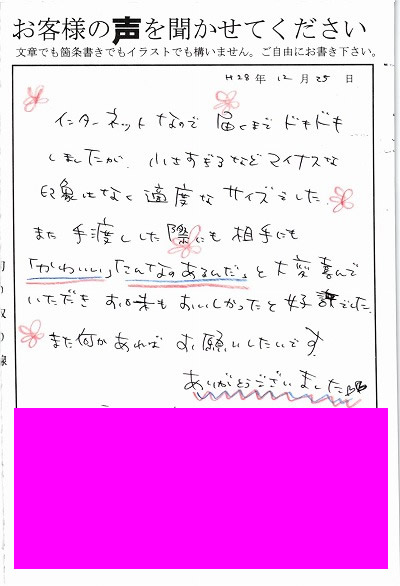 お客様の声を聞かせてください
文章でも箇条書きでもイラストでも構いません。ご自由にお書き下さい。
H28年 12月 25日
インターネットなので 届くまで ドキドキ
しましたが、小さすぎるなどマイナスな
印象はなく 適度な サイズでした。
また 手渡しした際にも 相手にも
「かわいい」「こんなのあるんだ」と大変喜んで
いただき お味もおいしかったと好評でした。
また何かあれば お願いしたいです
ありがとうございました